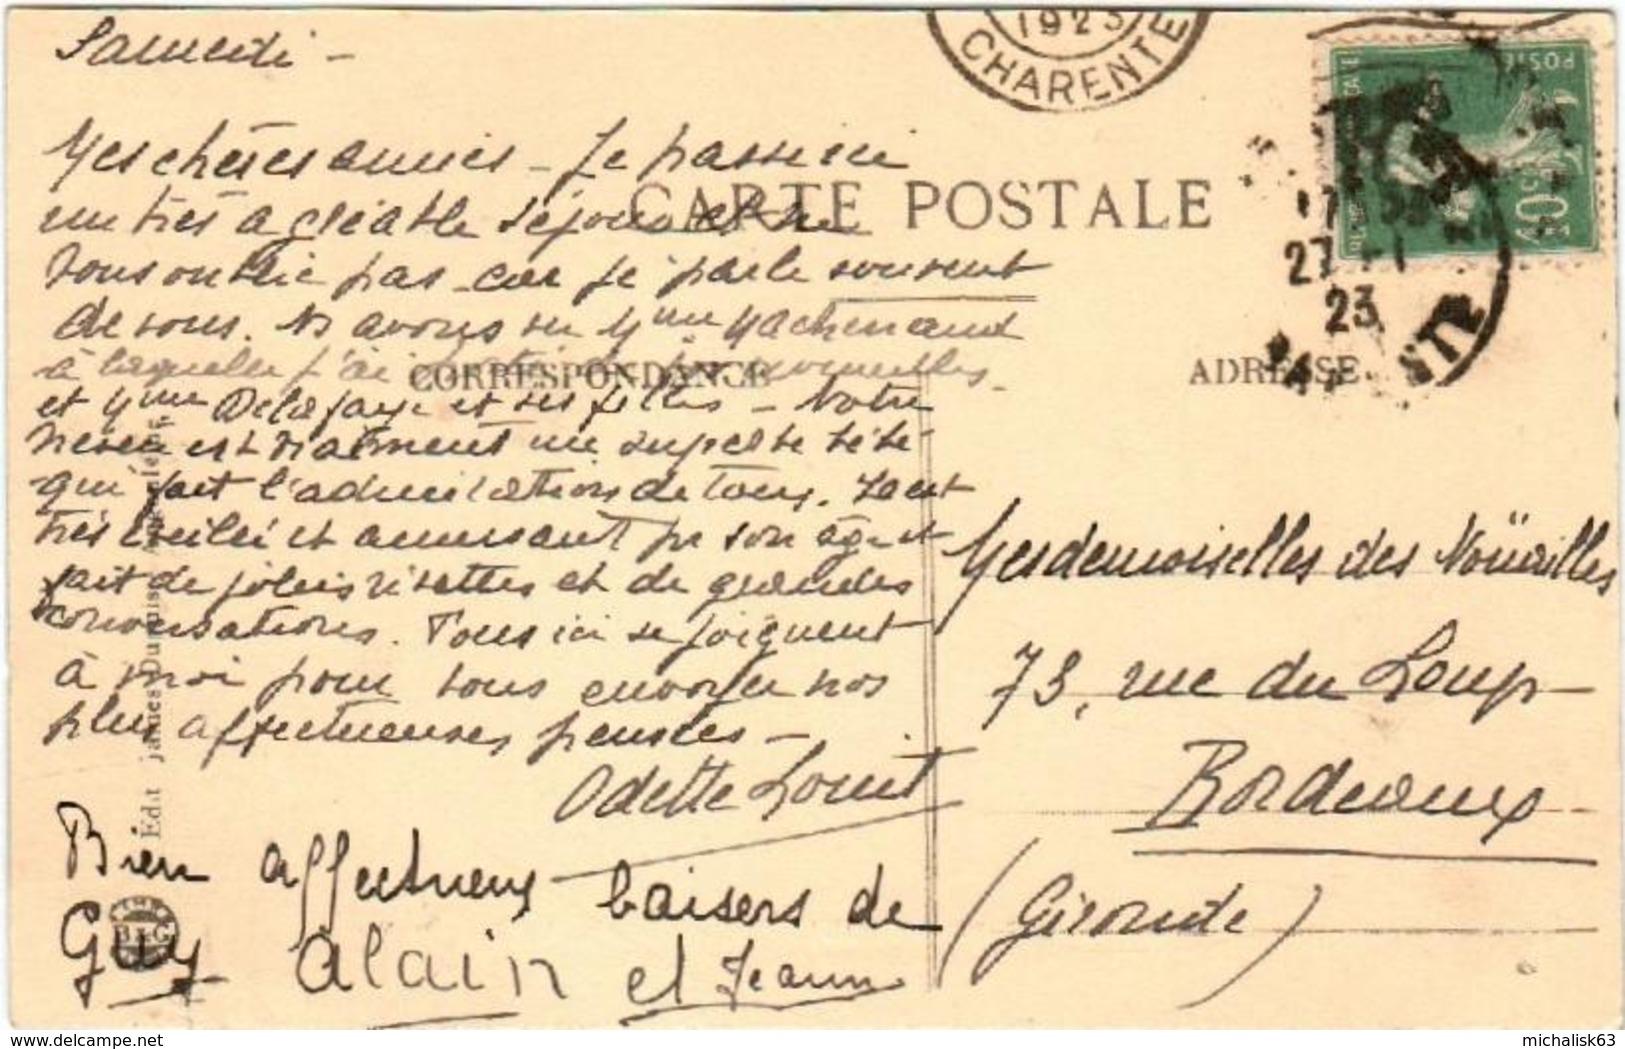 Samedi -
Mes chères amies - Je passe ici
un très agréable séjour et ne
vous oublie pas car je parle souvent
de vous. Ns avons vu Mme
à laquelle j'ai nouvelles -
et Mme Delafaye et ses filles - Notre
neveu est vraiment un superbe bébé
qui fait l'admiration de tous. Il est
très éveillé et amusant pr son âge et
fait de jolies risettes et de grandes
conversations. Tous ici se joignent
à moi pour vous envoyer nos
plus affectueuses pensées -
Odette Louit
Bien affectueux baisers de
Guy Alain et Jeanne
CARTE POSTALE
CORRESPONDANCE
ADRESSE
Mesdemoiselles des Noüailles
73, rue du Loup -
Bordeaux
(Gironde)
1923
CHARENTE
27 - 1
23
POSTE
10c
Edit
B&G
michalisk63